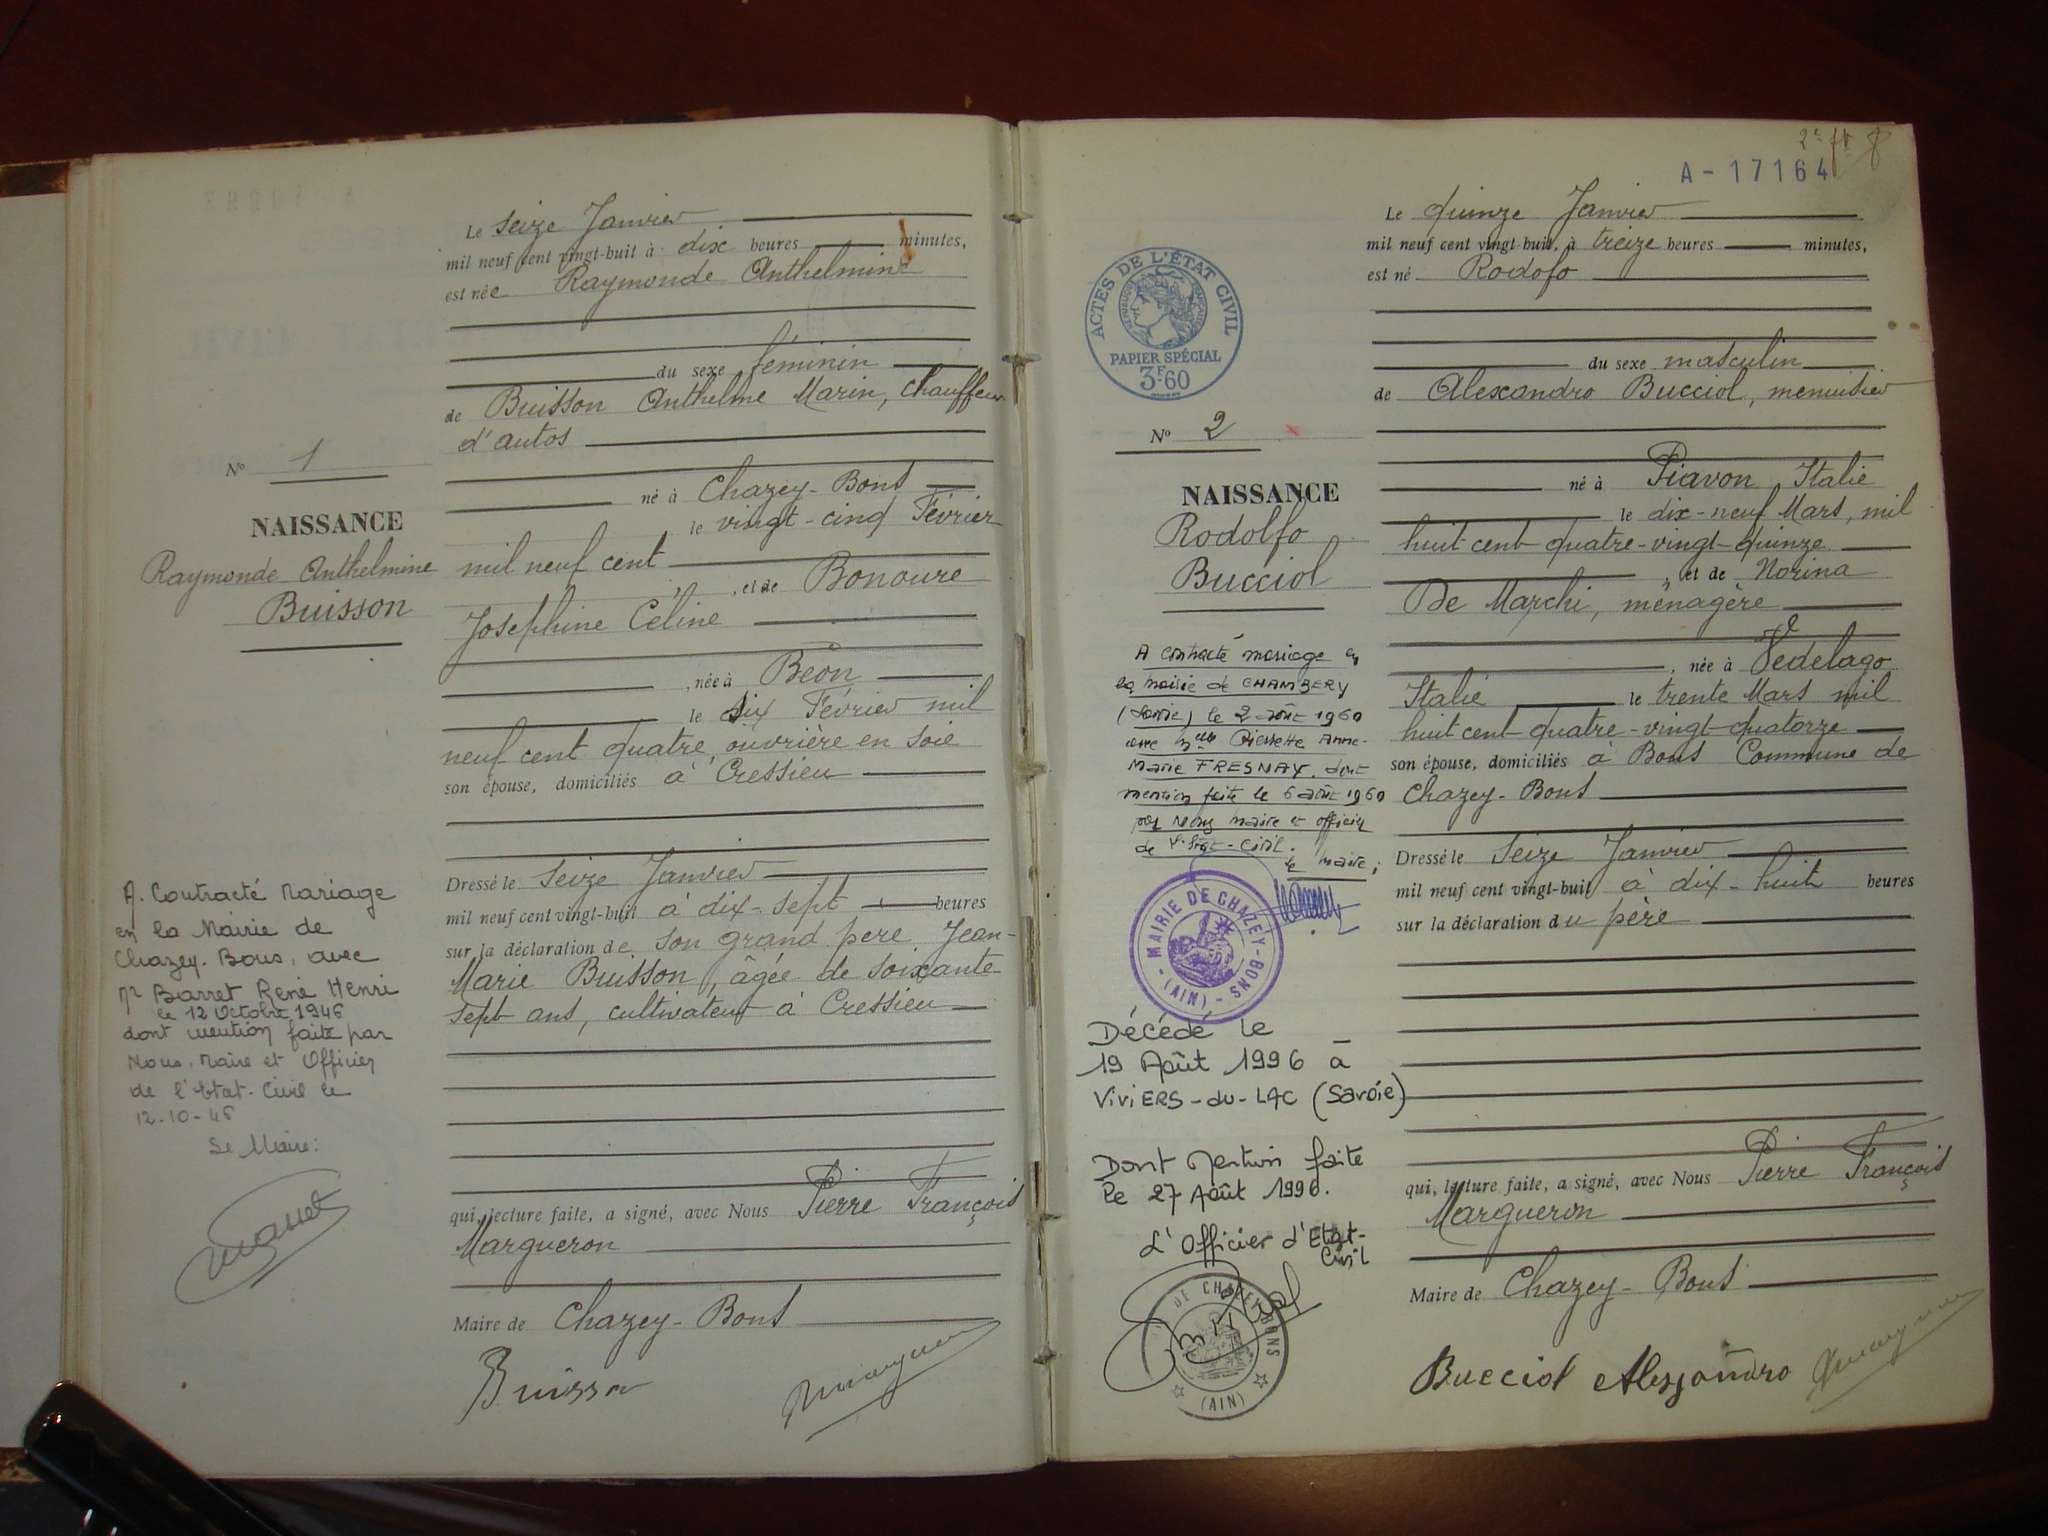 Le seize Janvier
mil neuf cent vingt-huit à dix heures minutes,
est née Raymonde Anthelmine
du sexe féminin
de Buisson Anthelme Marin, chauffeur
d'autos
né à Chazey-Bons
le vingt-cinq Février
mil neuf cent
, et de Bonoure
Joséphine Céline
, née à Béon
le six Février mil
neuf cent quatre, ouvrière en soie
son épouse, domiciliés à Cressieu
Dressé le seize Janvier
mil neuf cent vingt-huit à dix-sept heures
sur la déclaration de son grand père Jean-
Marie Buisson, âgée de soixante-
sept ans, cultivateur à Cressieu
qui, lecture faite, a signé, avec Nous Pierre François
Margueron
Maire de Chazey-Bons
Buisson
N° 1
NAISSANCE
Raymonde Anthelmine
Buisson
A. Contracté Mariage
en la Mairie de
Chazey-Bons, avec
Mr Barret René Henri
le 12 Octobre 1946
dont mention faite par
Nous, Maire et Officier
de l'Etat-Civil le
12-10-46
Le Maire:
2e ft 8
A-17164
ACTES DE L'ÉTAT CIVIL
RÉPUBLIQUE FRANÇAISE
PAPIER SPÉCIAL
3F60
N° 2
NAISSANCE
Rodolfo
Bucciol
A contracté mariage en
la mairie de CHAMBERY
(Savoie) le 2 août 1960
avec Melle Pierrette Anne-
Marie FRESNAY. dont
mention faite le 6 août 1960
par Nous maire et officier
de l'Etat-Civil.
Le maire;
MAIRIE DE CHAZEY-BONS
(AIN)
Décédé le
19 Août 1996 à
ViViERS-du-LAC (Savoie)
Dont Mention faite
le 27 Août 1996.
L'Officier d'Etat-
Civil
DE CHAZEY BONS
(AIN)
Le quinze Janvier
mil neuf cent vingt-huit, à treize heures minutes,
est né Rodofo
du sexe masculin
de Alexandro Bucciol, menuisier
né à Piavon Italie
le dix-neuf Mars, mil
huit cent quatre-vingt-quinze
, et de Norina
De Marchi, ménagère
, née à Vedelago
Italie le trente Mars mil
huit cent quatre-vingt-quatorze
son épouse, domiciliés à Bons Commune de
Chazey-Bons
Dressé le seize Janvier
mil neuf cent vingt-huit à dix-huit heures
sur la déclaration du père
qui, lecture faite, a signé, avec Nous Pierre François
Margueron
Maire de Chazey-Bons
Bucciol Alessandro